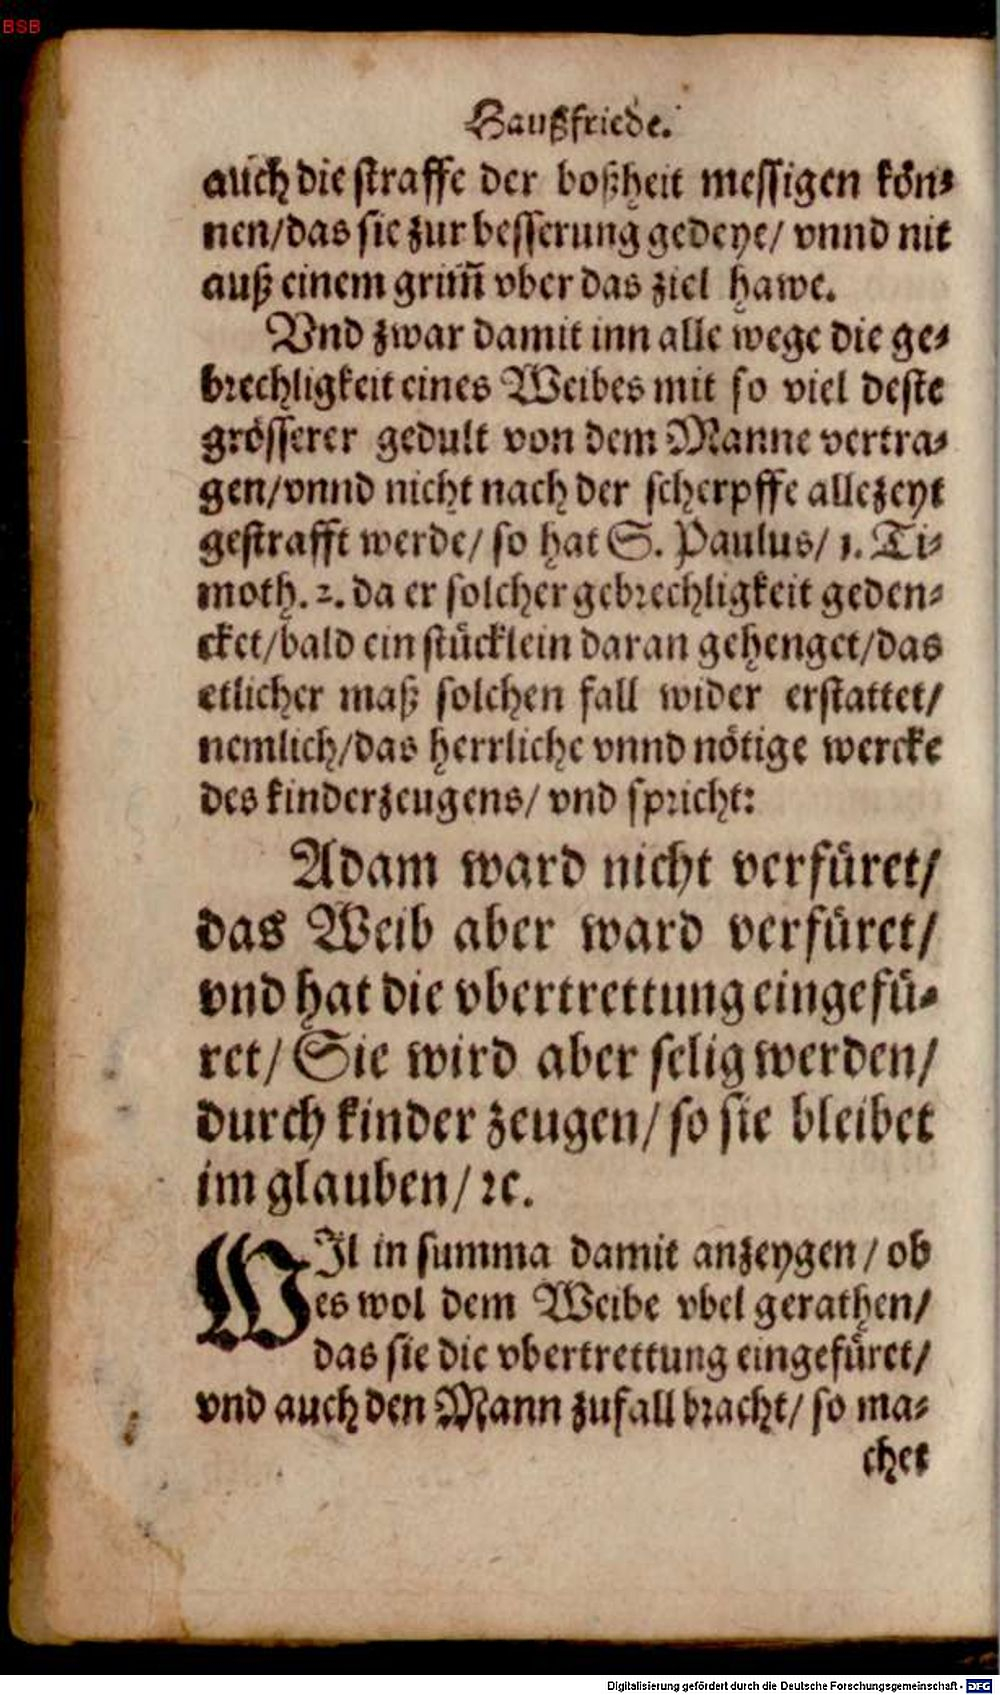 BSB
Haußfriede.
auch die straffe der boßheit messigen kön⸗
nen/das sie zur besserung gedeye/ vnnd nit
auß einem grim̃ vber das ziel hawe.
Vnd zwar damit inn alle wege die ge⸗
brechligkeit eines Weibes mit so viel deste
grösserer gedult von dem Manne vertra⸗
gen/vnnd nicht nach der scherpffe allezeyt
gestrafft werde/ so hat S. Paulus/ 1. Ti⸗
moth. 2. da er solcher gebrechligkeit geden⸗
cket/bald ein stücklein daran gehenget/das
etlicher maß solchen fall wider erstattet/
nemlich/das herrliche vnnd nötige wercke
des kinderzeugens/ vnd spricht:
Adam ward nicht verfüret/
das Weib aber ward verfüret/
vnd hat die vbertrettung eingefü⸗
ret/ Sie wird aber selig werden/
durch kinder zeugen/ so sie bleibet
im glauben/ ꝛc.
WIl in summa damit anzeygen/ ob
es wol dem Weibe vbel gerathen/
das sie die vbertrettung eingefüret/
vnd auch den Mann zufall bracht/ so ma⸗
chet
Digitalisierung gefördert durch die Deutsche Forschungsgemeinschaft - DFG